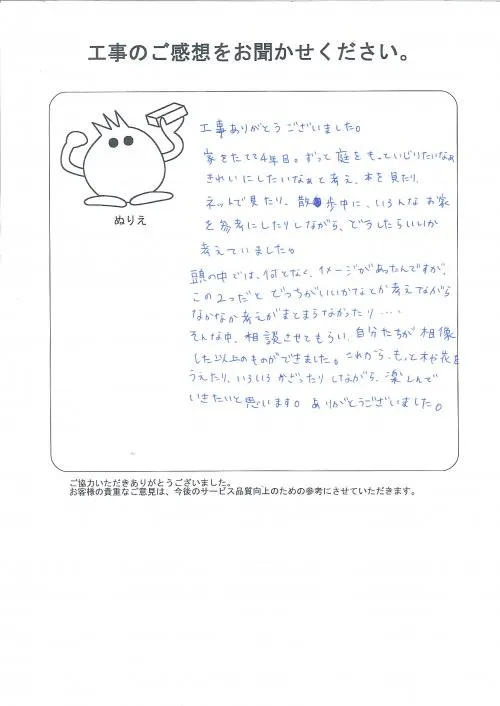 工事のご感想をお聞かせください。
ぬりえ
工事ありがとうございました。
家をたてて4年目。ずっと庭をもっといじりたいなぁ
きれいにしたいなぁと考え、本を見たり、
ネットで見たり、散歩中に、いろんなお家
を参考にしたりしながら、どうしたらいいか
考えていました。
頭の中では、何となく、イメージがあったんですが、
この2つだとどっちがいいかなとか考えながら
なかなか考えがまとまらなかったり・・・・
そんな中、相談させてもらい、自分たちが想像
した以上のものができました。これから、もっと木や花を
うえたり、いろいろかざったりしながら、楽しんで
いきたいと思います。ありがとうございました。
ご協力いただきありがとうございました。
お客様の貴重なご意見は、今後のサービス品質向上のための参考にさせていただきます。